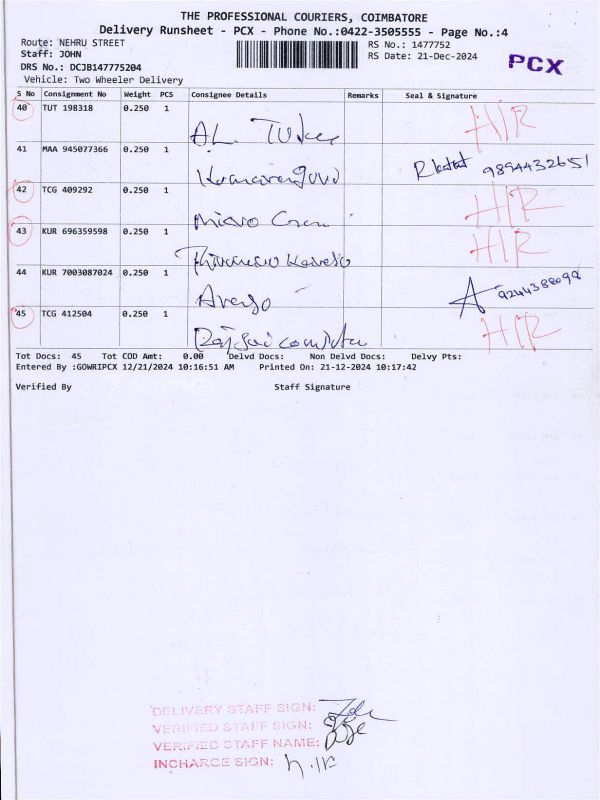 THE PROFESSIONAL COURIERS, COIMBATORE
Delivery Runsheet - PCX - Phone No.:0422-3505555 - Page No.:4
Route: NEHRU STREET RS No.: 1477752
Staff: JOHN RS Date: 21-Dec-2024 PCX
DRS No.: DCJB147775204
Vehicle: Two Wheeler Delivery
S No Consignment No Weight PCS Consignee Details Remarks Seal & Signature
40 TUT 198318 0.250 1 H/R
41 MAA 945077366 0.250 1 9894432651
42 TCG 409292 0.250 1 H/R
43 KUR 696359598 0.250 1 H/R
44 KUR 7003087024 0.250 1 9244388098
45 TCG 412504 0.250 1 H/R
Tot Docs: 45 Tot COD Amt: 0.00 Delvd Docs: Non Delvd Docs: Delvy Pts:
Entered By :GOWRIPCX 12/21/2024 10:16:51 AM Printed On: 21-12-2024 10:17:42
Verified By Staff Signature
DELIVERY STAFF SIGN:
VERIFIED STAFF SIGN:
VERIFIED STAFF NAME:
INCHARGE SIGN: